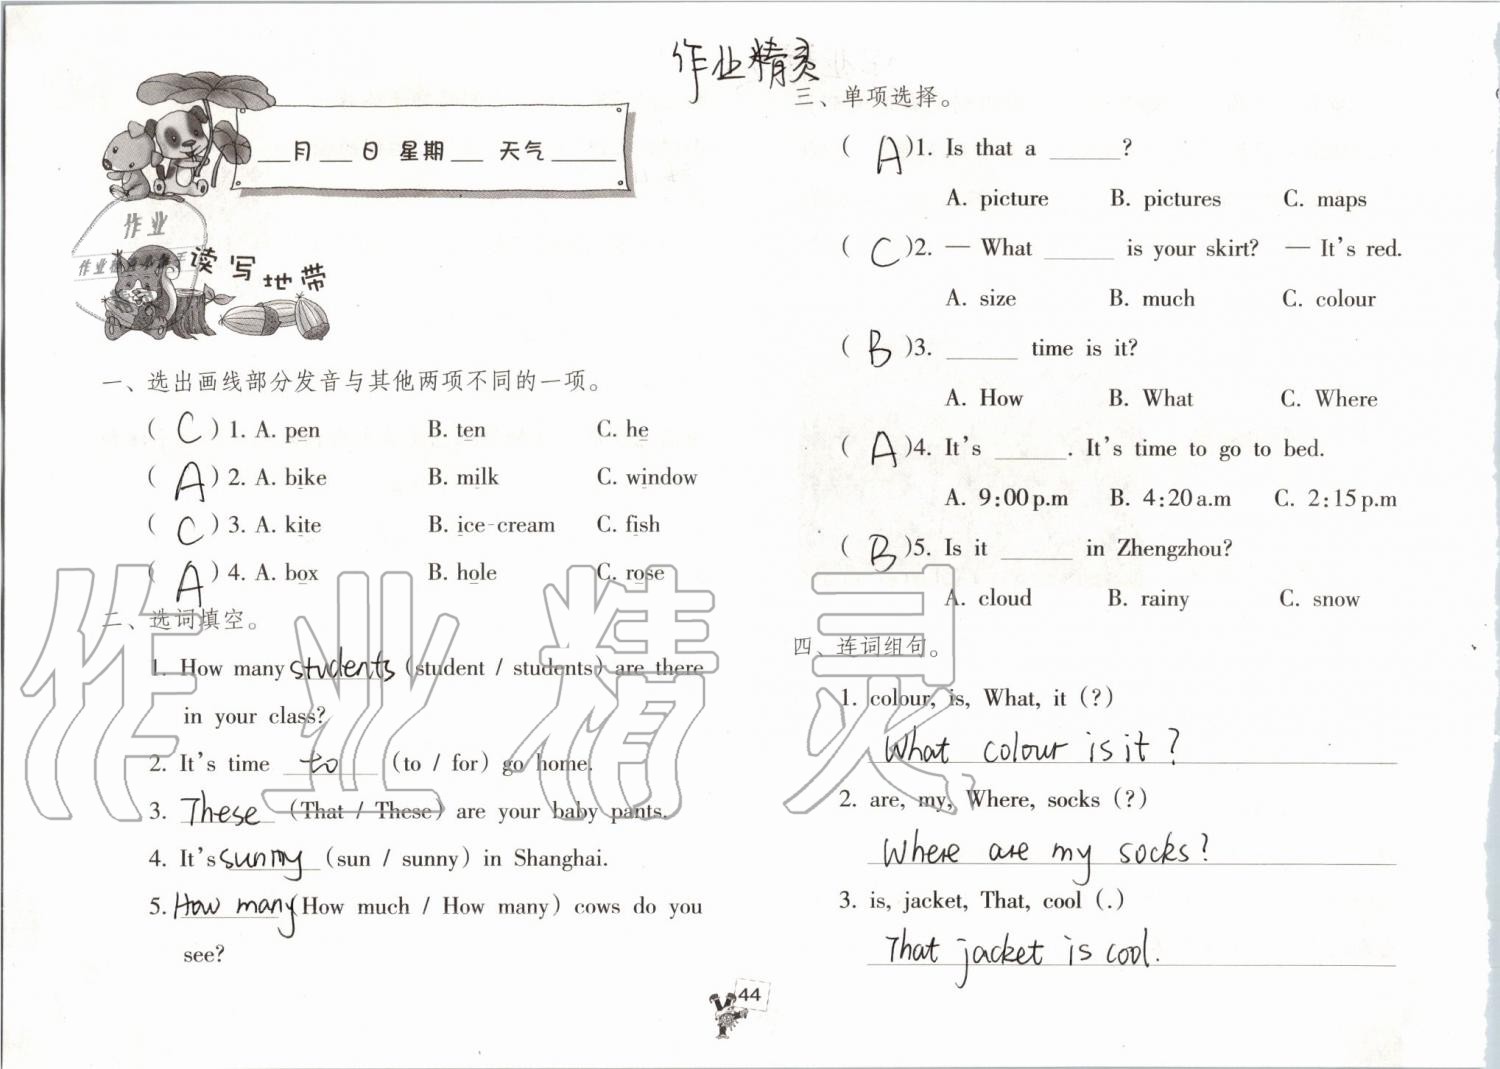 作业精灵
___月___日 星期___ 天气______
作业
读写地带
一、选出画线部分发音与其他两项不同的一项。
( C ) 1. A. pen B. ten C. he
( A ) 2. A. bike B. milk C. window
( C ) 3. A. kite B. ice-cream C. fish
( A ) 4. A. box B. hole C. rose
二、选词填空。
1. How many students (student / students) are there
in your class?
2. It's time to (to / for) go home.
3. These (That / These) are your baby pants.
4. It's sunny (sun / sunny) in Shanghai.
5. How many (How much / How many) cows do you
see?
三、单项选择。
( A )1. Is that a ______?
A. picture B. pictures C. maps
( C )2. — What ______ is your skirt? — It's red.
A. size B. much C. colour
( B )3. ______ time is it?
A. How B. What C. Where
( A )4. It's ______. It's time to go to bed.
A. 9:00 p.m B. 4:20 a.m C. 2:15 p.m
( B )5. Is it ______ in Zhengzhou?
A. cloud B. rainy C. snow
四、连词组句。
1. colour, is, What, it (?)
What colour is it?
2. are, my, Where, socks (?)
Where are my socks?
3. is, jacket, That, cool (.)
That jacket is cool.
44
作业精灵